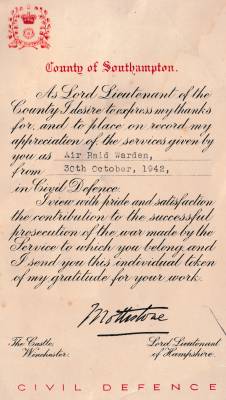 County of Southampton.
As Lord Lieutenant of the
County I desire to express my thanks
for, and to place on record my
appreciation of, the services given by
you as Air Raid Warden,
from 30th October, 1942,
in Civil Defence.
I view with pride and satisfaction
the contribution to the successful
prosecution of the war made by the
Service to which you belong, and
I send you this individual token
of my gratitude for your work.
Mottistone
The Castle, Lord Lieutenant
Winchester. of Hampshire.
CIVIL DEFENCE